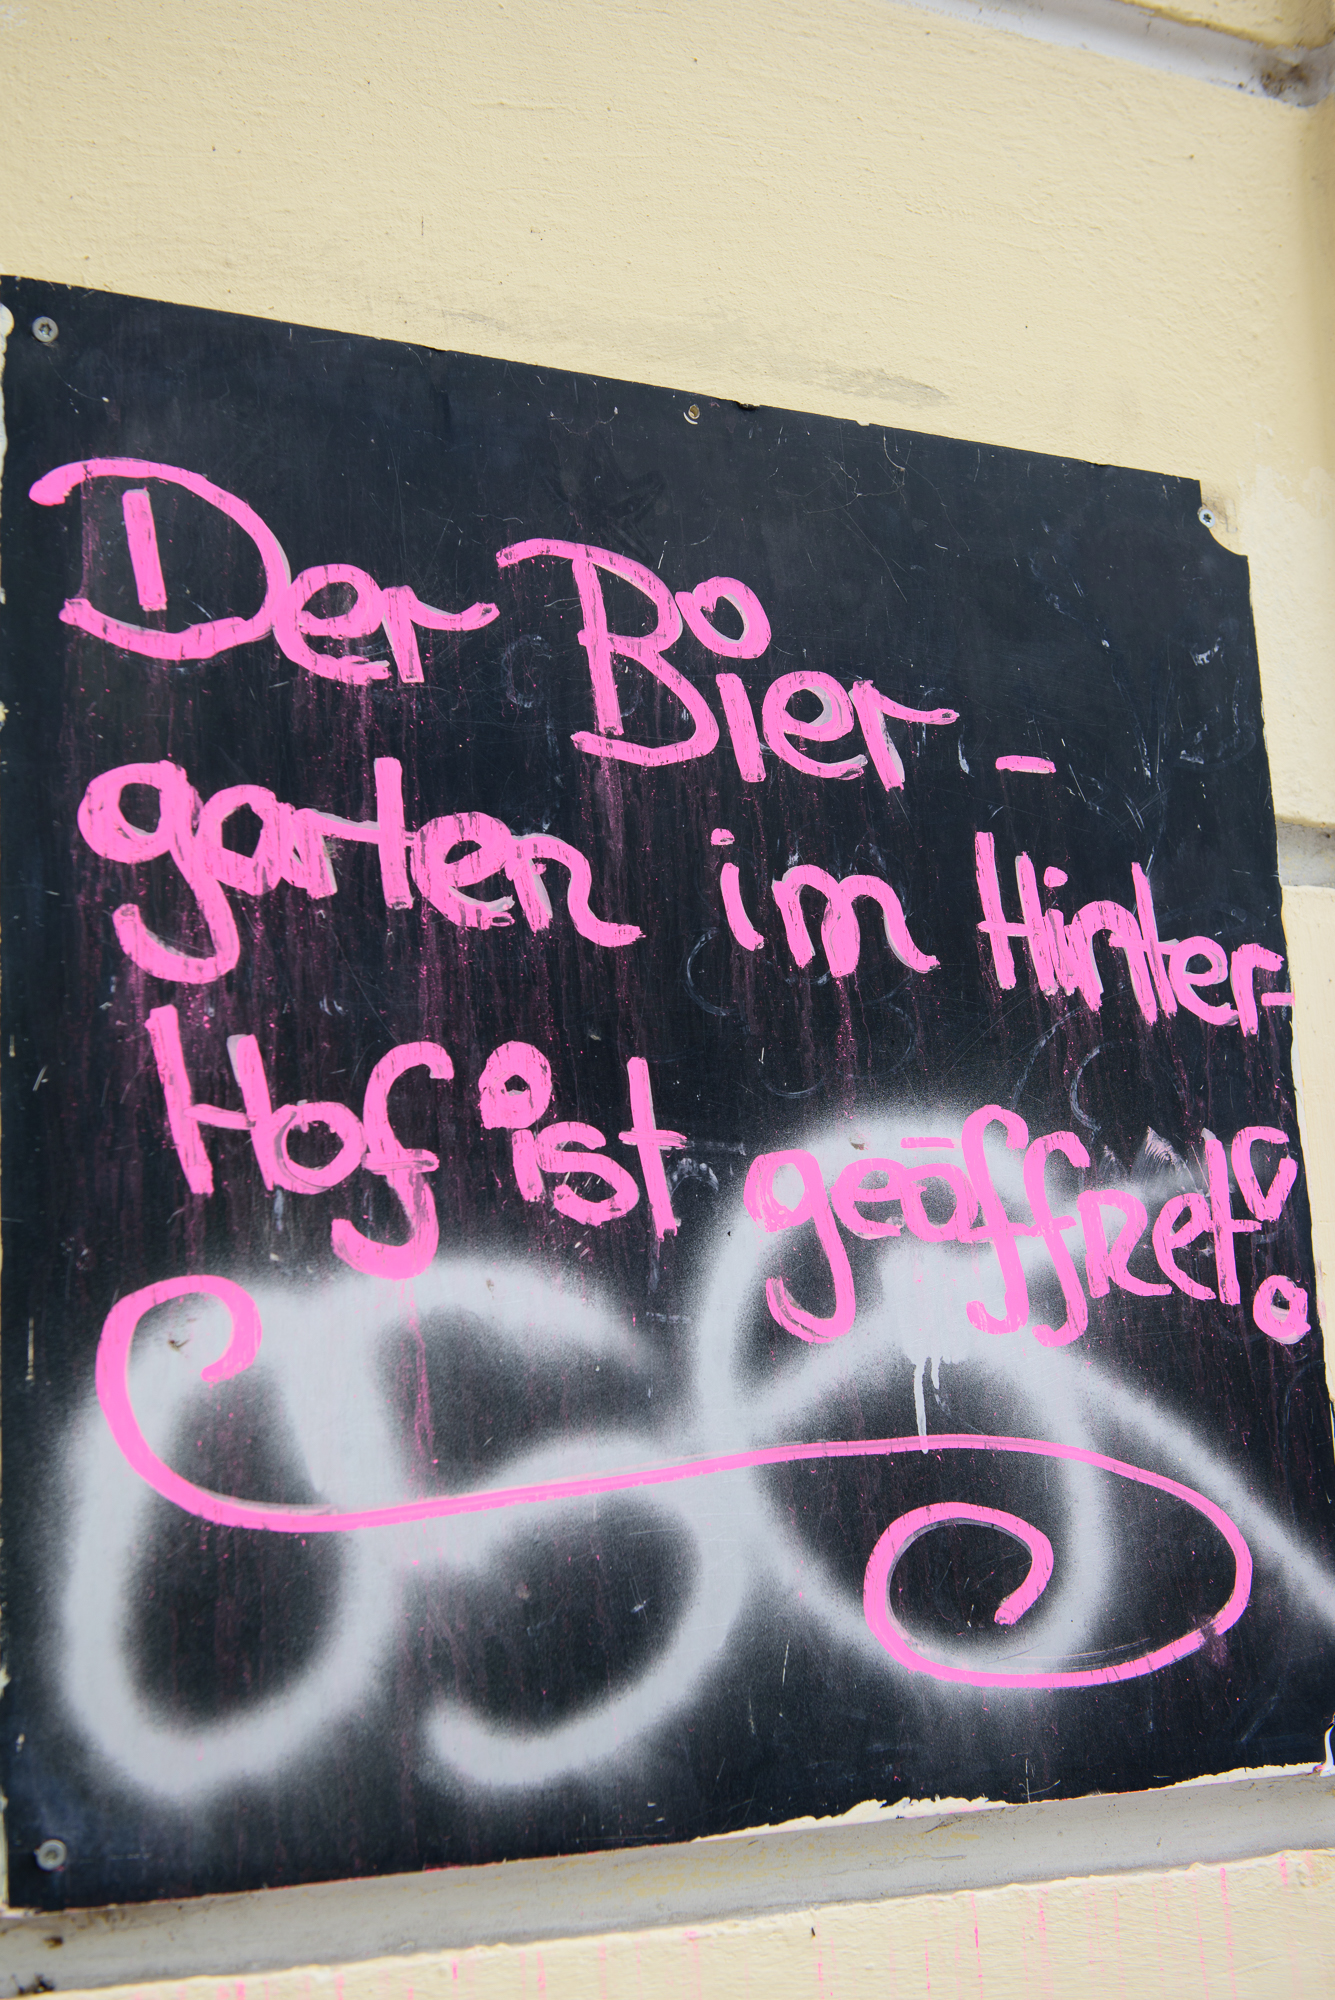 Der Bier-
garten im Hinter-
Hof ist geöffnet!